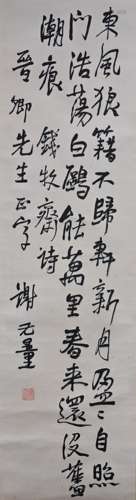 東風狼籍不歸軒新月盈〻自照
門浩蕩白鷗能萬里春來還没舊
潮痕 錢牧齋詩
晉卿先生正字
謝无量